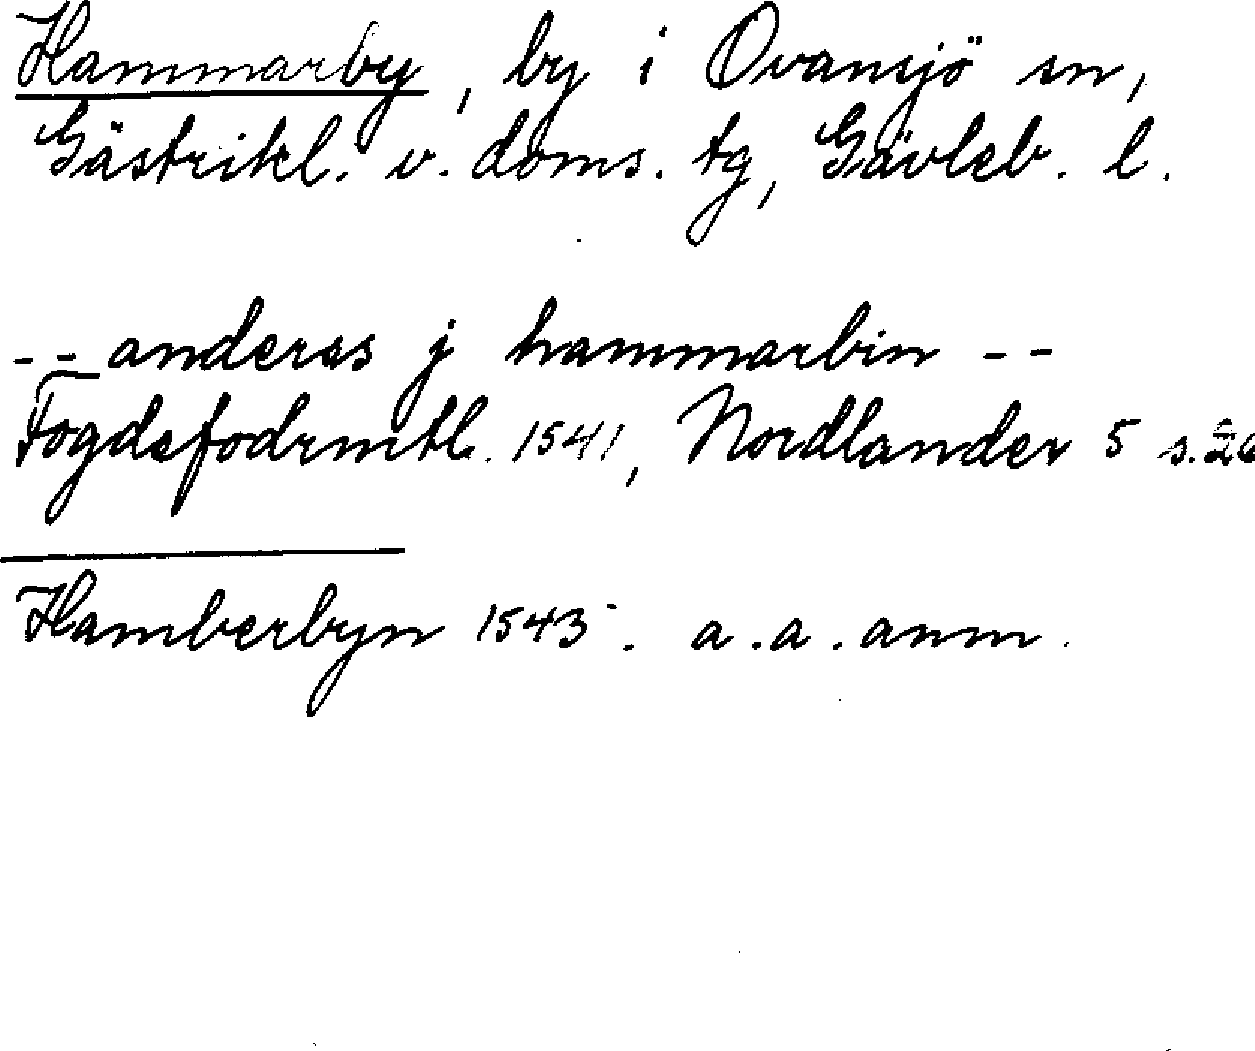 Hammarby, by i Ovansjö sn,
Gästrikl. v. doms. tg, Gävleb. l.
-- anderss j hammarbin --
Fogdefodrmtl. 1541, Nordlander 5 s.
Hamberbyn 1543. a.a. anm.